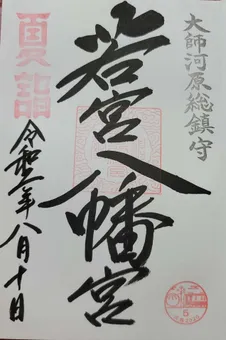 大師河原総鎮守
若宮八幡宮
夏詣
令和二年八月十日
5